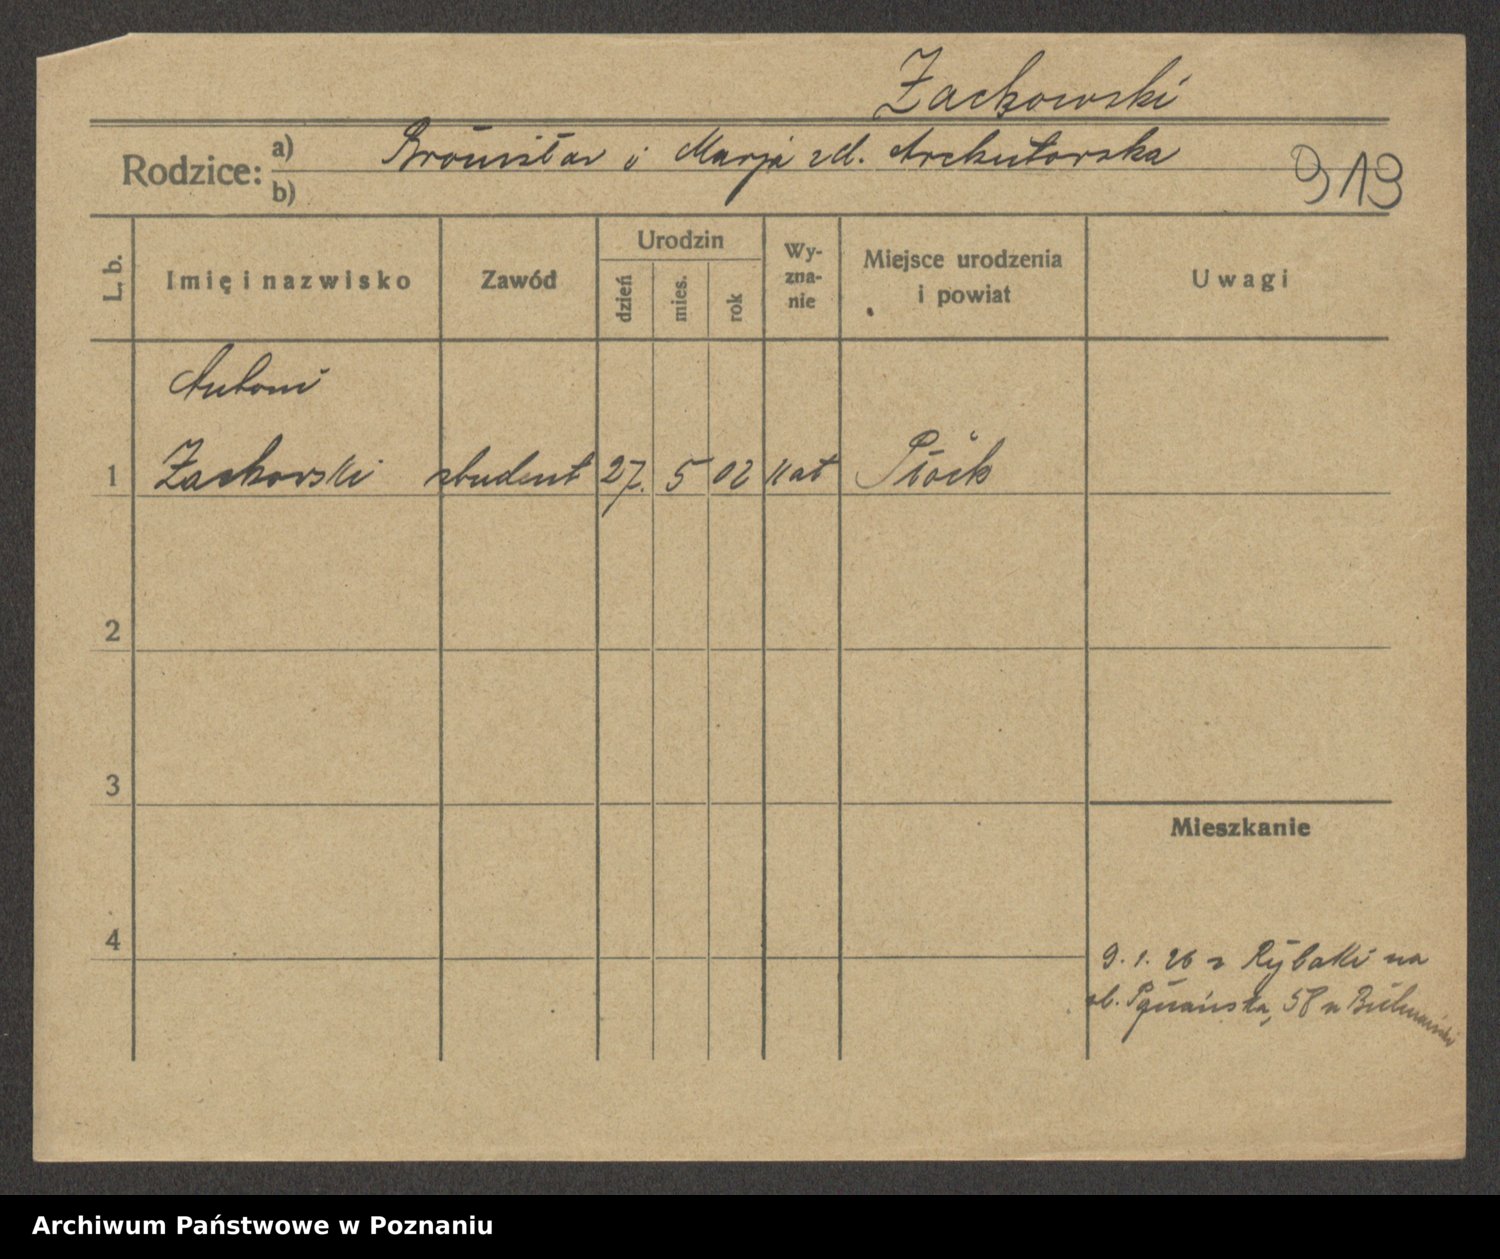 Żackowski
Rodzice: a) Bronisław i Marja zd. Archutowska
b)
913
L. b.
Imię i nazwisko
Zawód
Urodzin
dzień
mies.
rok
Wy-
zna-
nie
Miejsce urodzenia
i powiat
Uwagi
Antoni
1 Żackowski student 27. 5 02 kat Płock
2
3
Mieszkanie
4
9. 1. 26 z Rybaki na
ul. Poznańska, 58 u
Archiwum Państwowe w Poznaniu